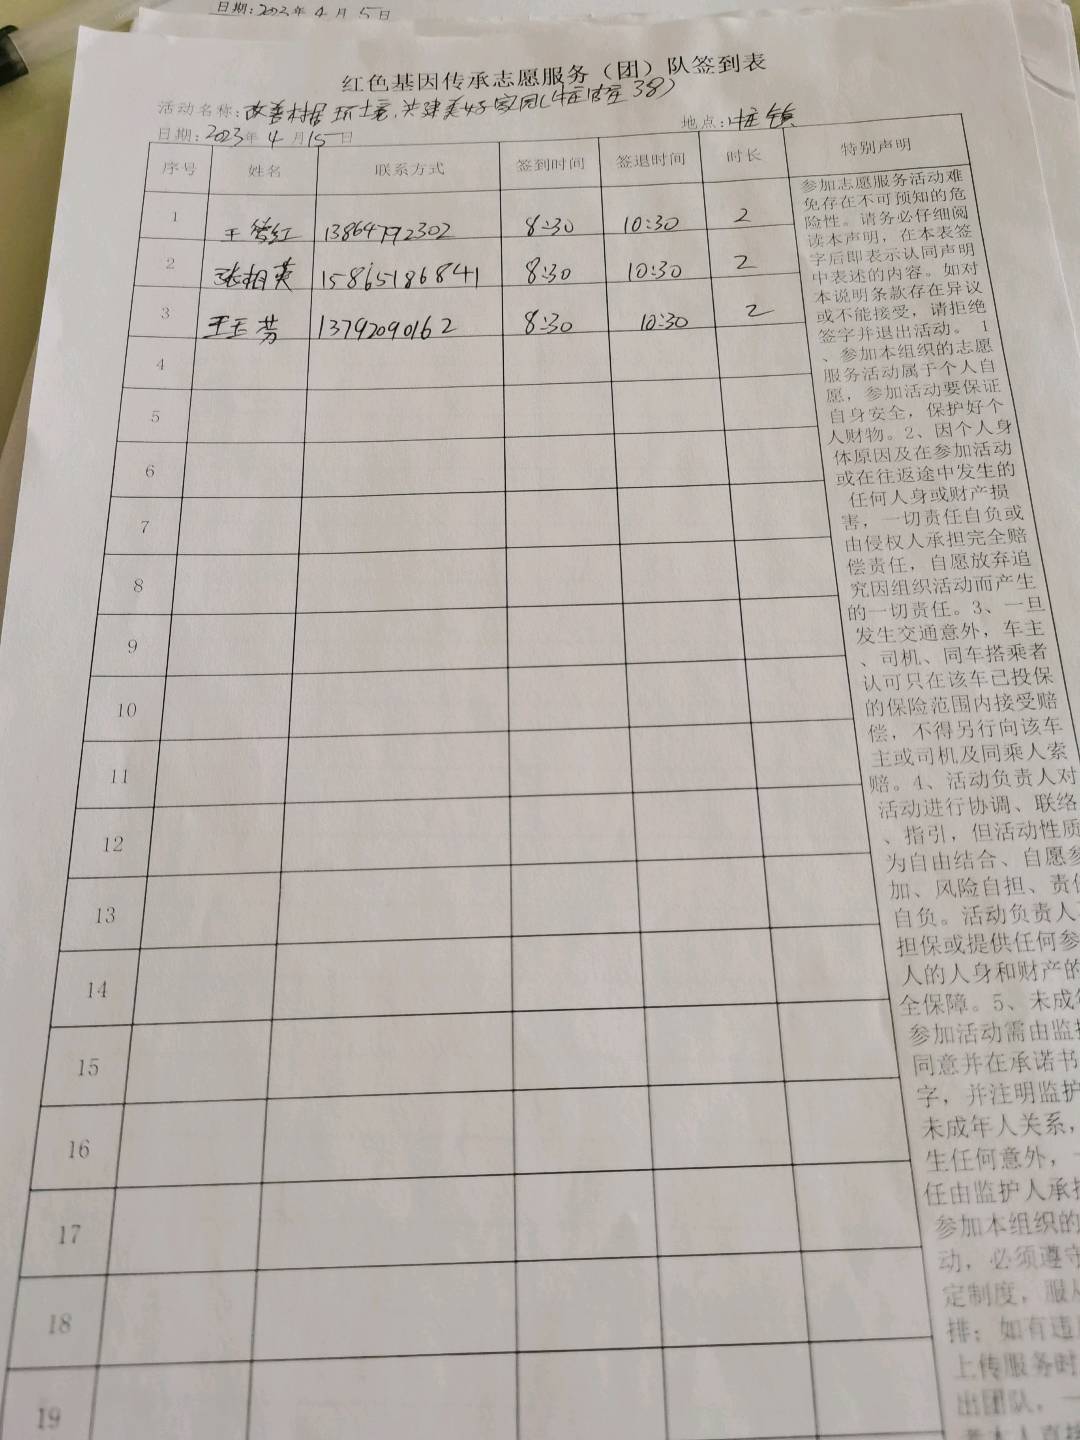 日期:2023年4月5日
红色基因传承志愿服务（团）队签到表
活动名称:改善村居环境,共建美好家园(38)
日期:2023年4月15日 地点:镇
序号 姓名 联系方式 签到时间 签退时间 时长 特别声明
1 王红 13864792302 8:30 10:30 2
2 张相英 15865186841 8:30 10:30 2
3 王玉芳 13792090162 8:30 10:30 2
4
5
6
7
8
9
10
11
12
13
14
15
16
17
18
19
参加志愿服务活动难
免存在不可预知的危
险性。请务必仔细阅
读本声明，在本表签
字后即表示认同声明
中表述的内容。如对
本说明条款存在异议
或不能接受，请拒绝
签字并退出活动。1
、参加本组织的志愿
服务活动属于个人自
愿，参加活动要保证
自身安全，保护好个
人财物。2、因个人身
体原因及在参加活动
或在往返途中发生的
任何人身或财产损
害，一切责任自负或
由侵权人承担完全赔
偿责任，自愿放弃追
究因组织活动而产生
的一切责任。3、一旦
发生交通意外，车主
、司机、同车搭乘者
认可只在该车已投保
的保险范围内接受赔
偿，不得另行向该车
主或司机及同乘人索
赔。4、活动负责人对
活动进行协调、联络
、指引，但活动性质
为自由结合、自愿参
加、风险自担、责任
自负。活动负责人
担保或提供任何参
人的人身和财产的
全保障。5、未成年
参加活动需由监护
同意并在承诺书
字，并注明监护
未成年人关系，
生任何意外，一
任由监护人承担
参加本组织的
动，必须遵守
定制度，服从
排；如有违
上传服务时
出团队，一